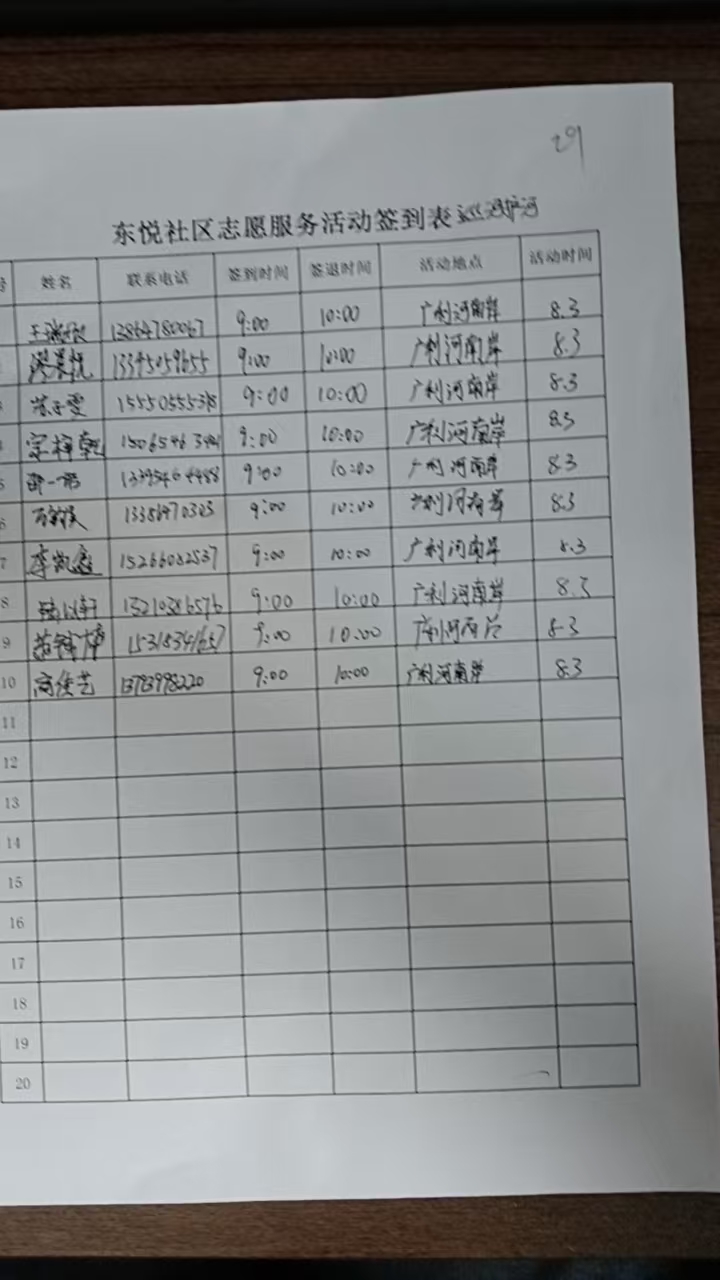 29
东悦社区志愿服务活动签到表 巡河护河
号 姓名 联系电话 签到时间 签退时间 活动地点 活动时间
13864780067 9:00 10:00 广利河南岸 8.3
13345059655 9:00 10:00 广利河南岸 8.3
9:00 10:00 广利河南岸 8.3
宗梓乾 9:00 10:00 广利河南岸 8.3
5 邵一 9:00 10:00 广利河南岸 8.3
6 9:00 10:00 广利河南岸 8.3
7 李凯鑫 15266082537 9:00 10:00 广利河南岸 8.3
8 以轩 13210386576 9:00 10:00 广利河南岸 8.3
9 15318341657 9:00 10:00 广利河南岸 8.3
10 高俊艺 9:00 10:00 广利河南岸 8.3
11
12
13
14
15
16
17
18
19
20